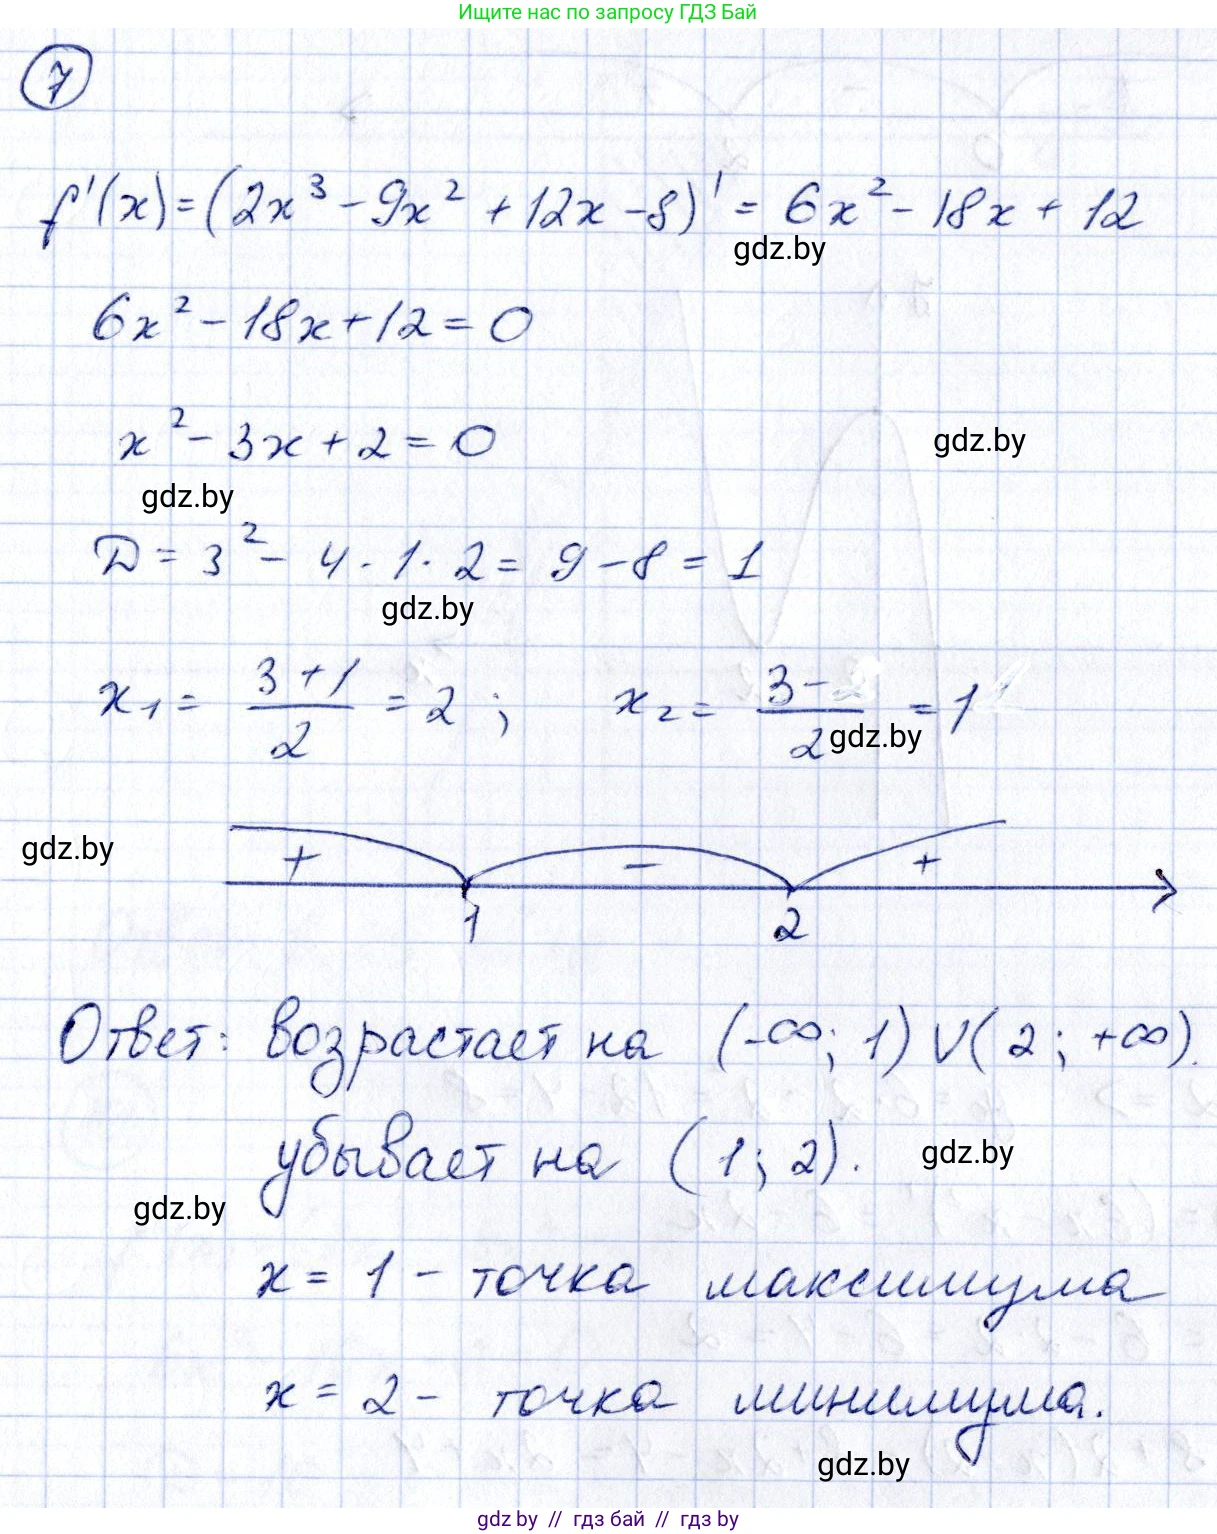 Ищите нас по запросу ГДЗ Бай
7
f'(x) = (2x³ - 9x² + 12x - 8)' = 6x² - 18x + 12
gdz.by
6x² - 18x + 12 = 0
x² - 3x + 2 = 0
gdz.by
gdz.by
D = 3² - 4 · 1 · 2 = 9 - 8 = 1
gdz.by
x₁ = (3 + 1)/2 = 2 ; x₂ = (3 - )/2 = 1
gdz.by
gdz.by
+ - +
1 2
Ответ: возрастает на (-∞; 1) ∪ (2; +∞).
убывает на (1; 2).
gdz.by
gdz.by
x = 1 - точка максимума
x = 2 - точка минимума.
gdz.by
gdz.by // гдз бай // гдз by